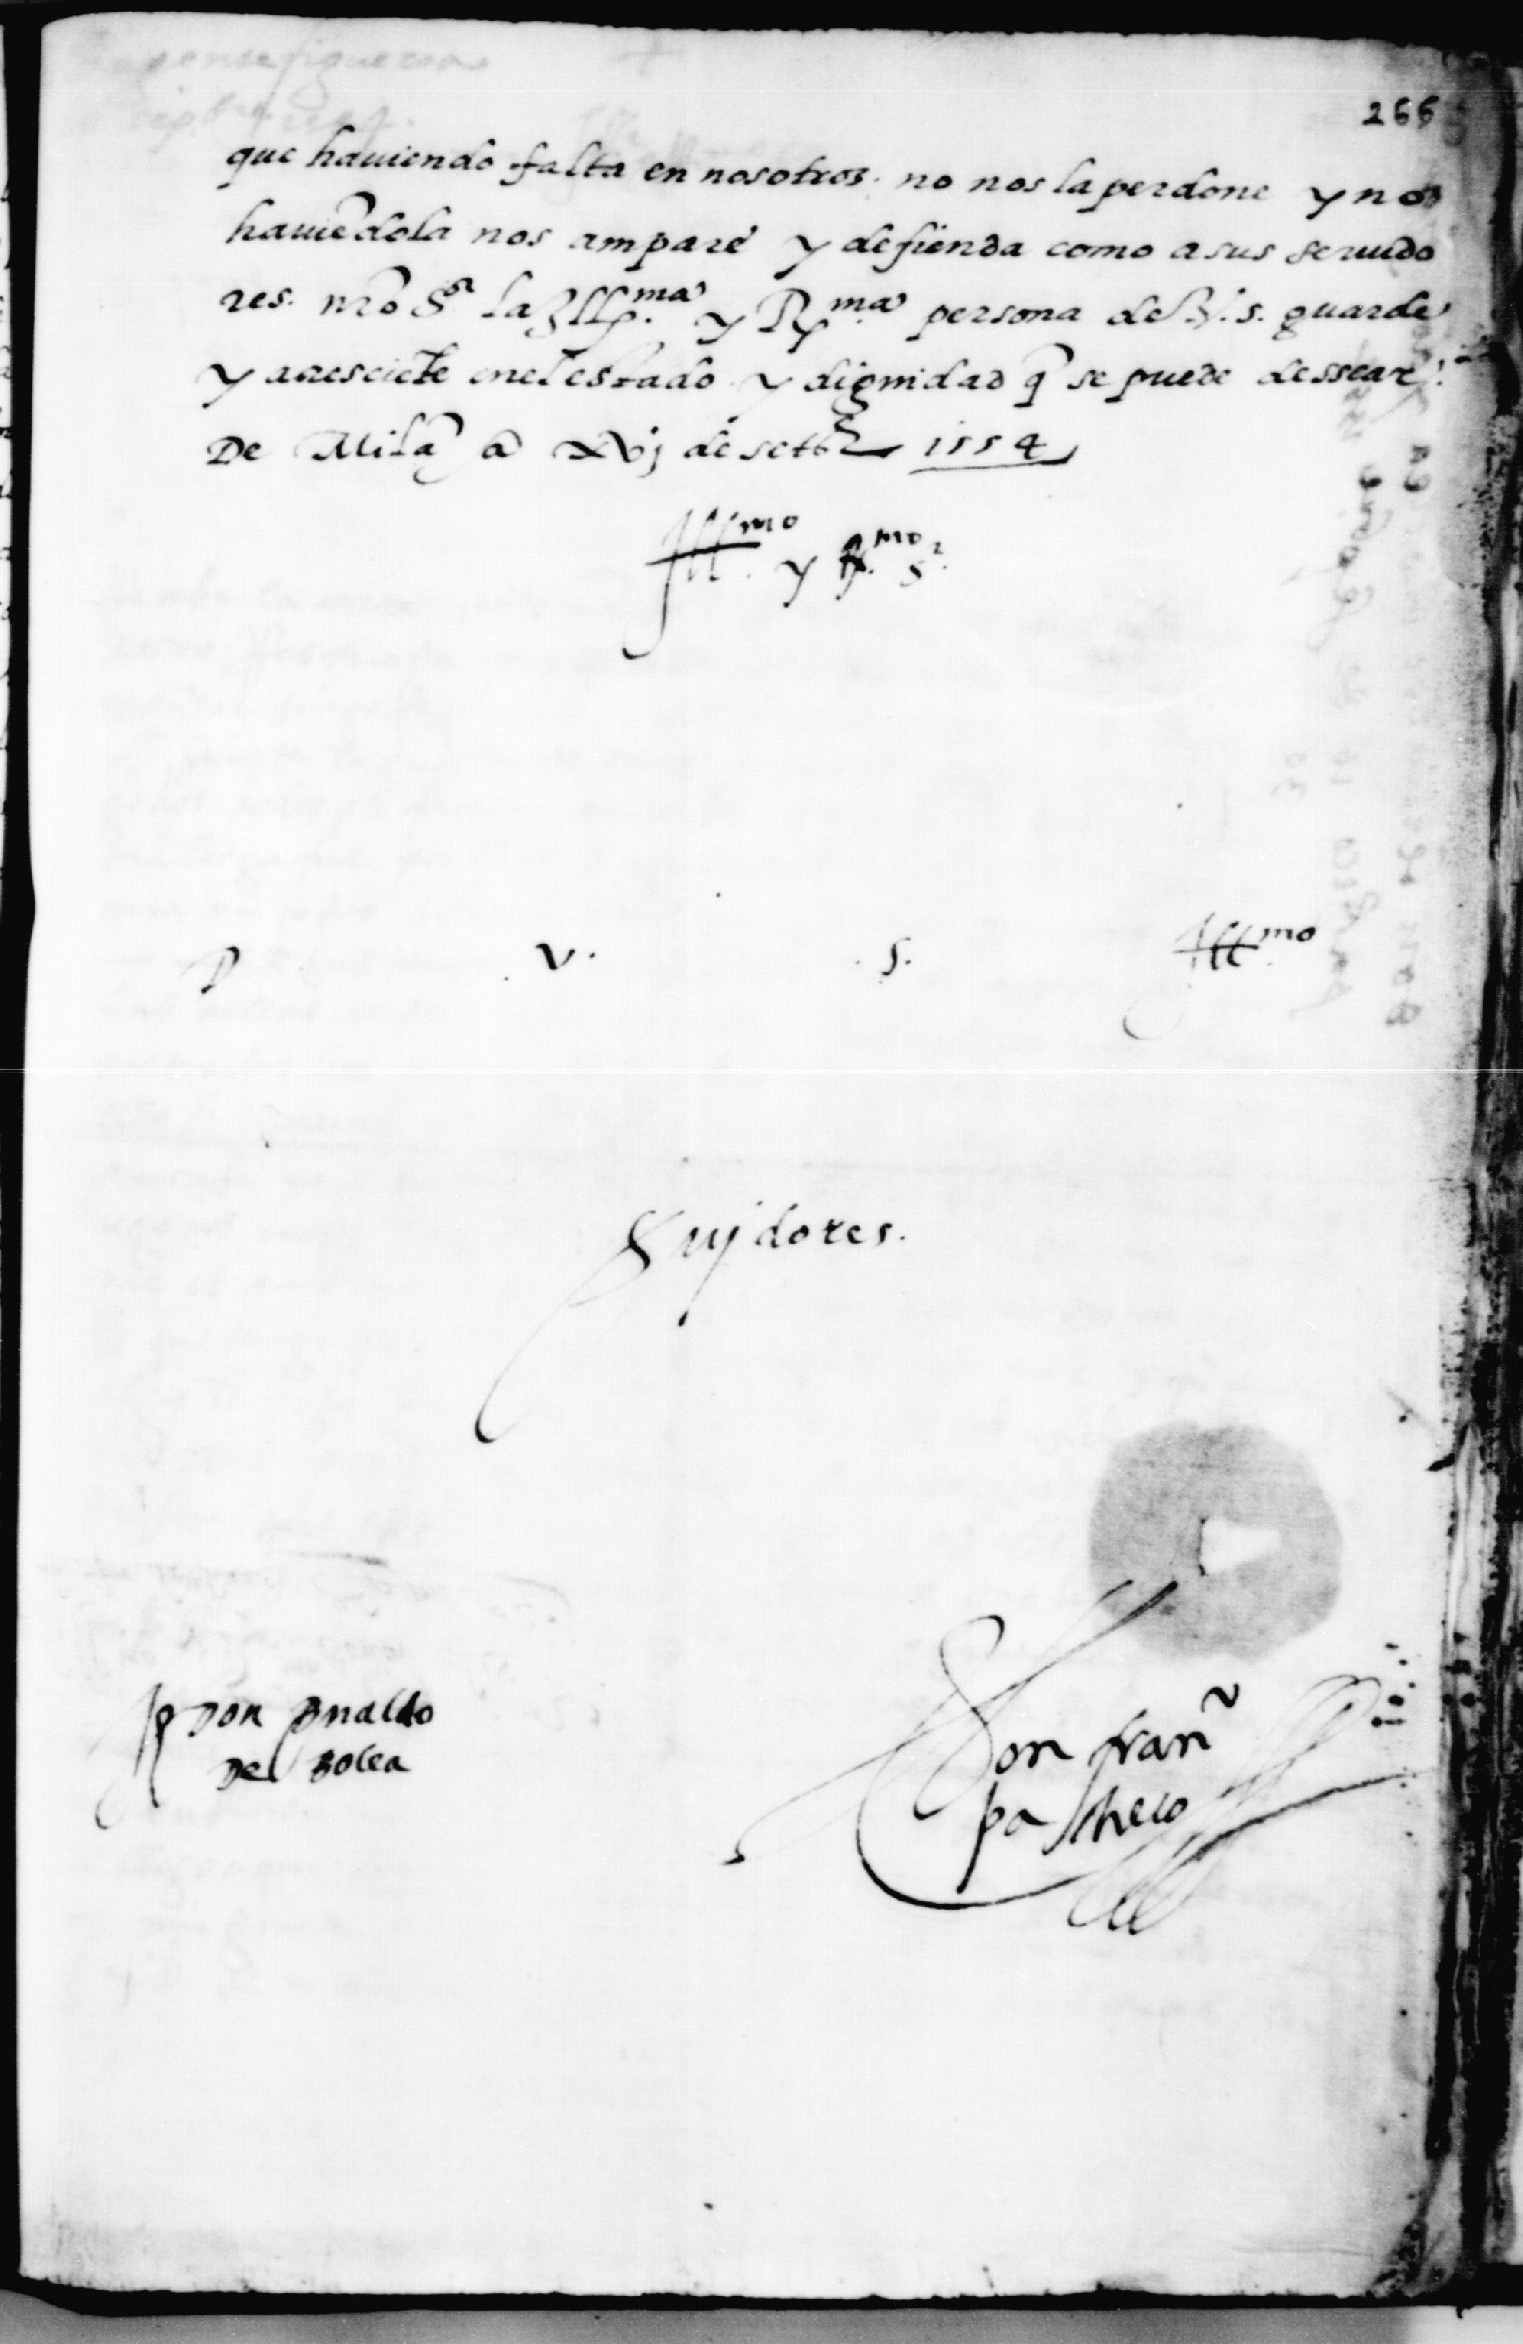 266
que hauiendo falta en nosotros. no nos la perdone y no
hauiēdola nos ampare y defienda como a sus seruido
res. nr̄o S.or la Ill.ma y R.ma persona de V. s. guarde
y acresciēte en el estado y dignidad q̄ se puede dessear.
De Milā a xvj de setbr̄ 1554
Ill.mo y R.mo s.r
D V. S. Ill.mo
Seruidores.
Don
de Bolea
Don Fran.co
pacheco